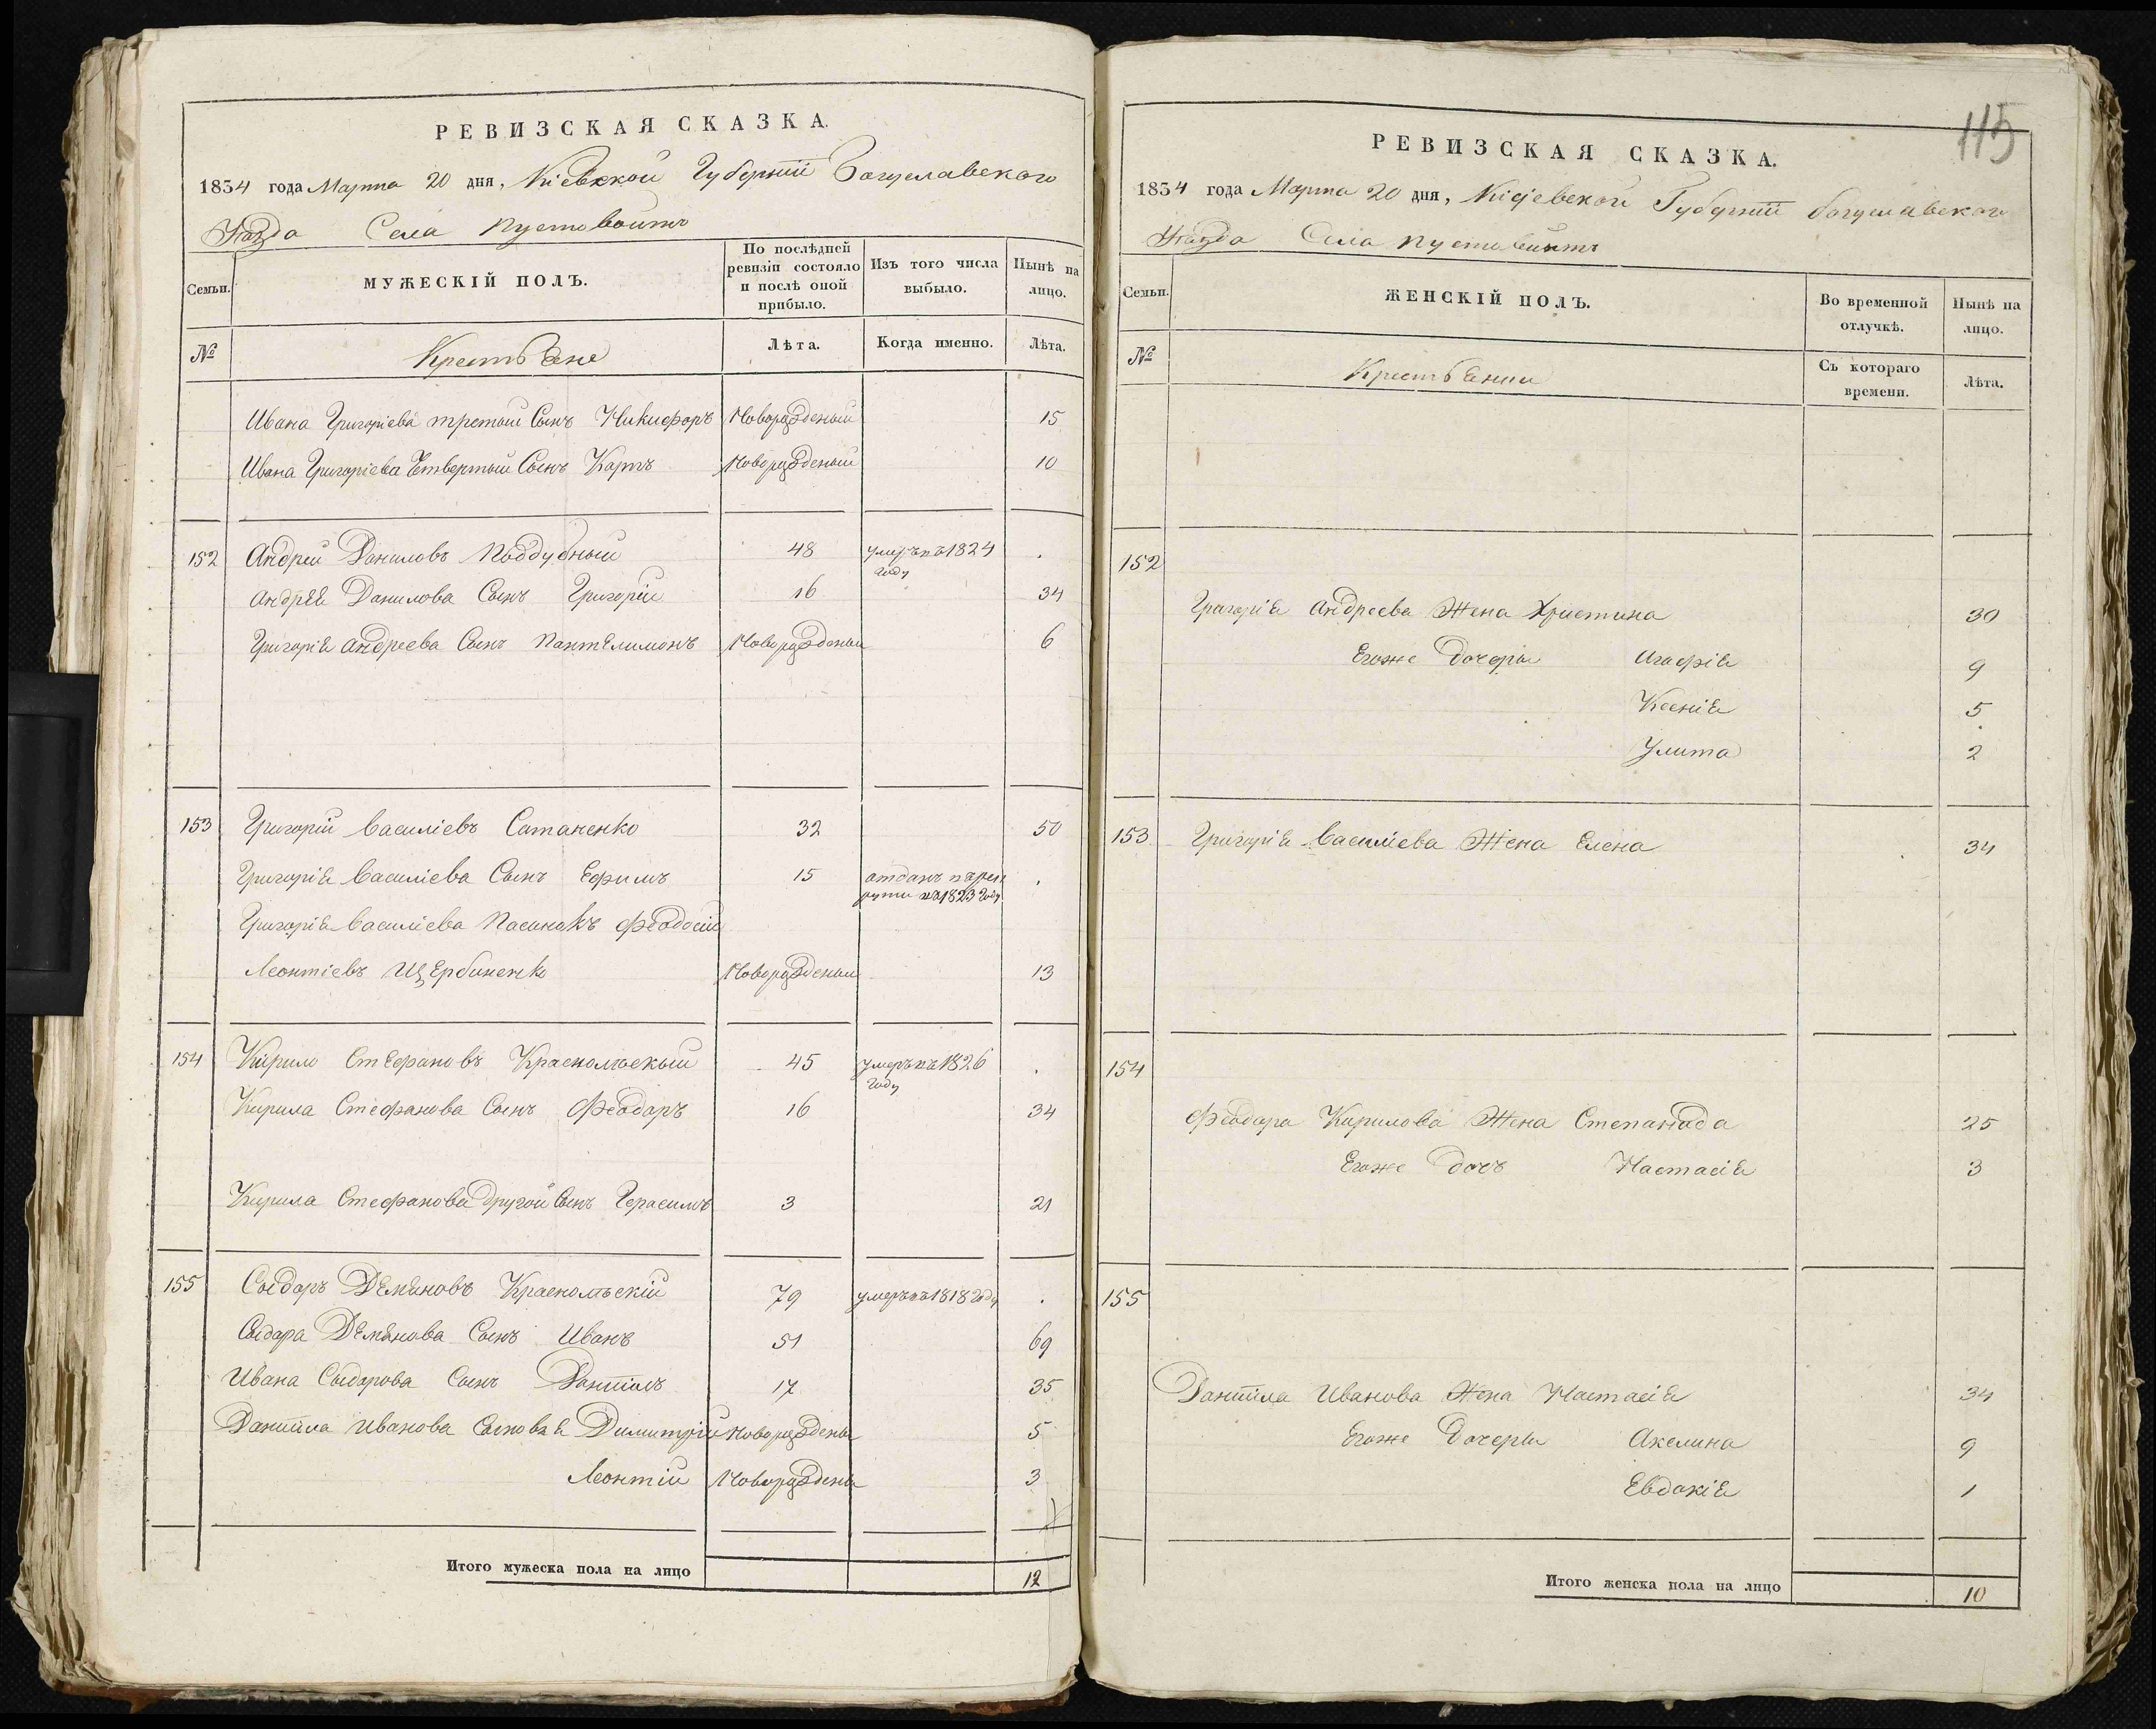 РЕВИЗСКАЯ СКАЗКА.
1834 года Марта 20 дня, Кіевской Губерніи Богуславского
Уезда Села Пустовоитъ
Семьи.
МУЖЕСКІЙ ПОЛЪ.
По послѣдней ревизіи состояло и послѣ оной прибыло.
Изъ того числа выбыло.
Нынѣ на лицо.
№
Крестьяне
Лѣта.
Когда именно.
Лѣта.
Ивана Григоріева третый Сынъ Никифоръ Новорожденый 15
Ивана Григоріева Четвертый Сынъ Карпъ Новорожденый 10
152 Андрей Даниловъ Поддубный 48 умеръ въ 1824 году .
Андрея Данилова Сынъ Григорій 16 34
Григорія Андреева Сынъ Пантелимонъ Новорожденый 6
153 Григорій Василіевъ Сотаненко 32 50
Григорія Василіева Сынъ Ефимъ 15 отданъ в рекруты въ 1823 году .
Григорія Василіева Пасынокъ Феодосій
Леонтіевъ Щербиненко Новорожденый 13
154 Кирило Стефановъ Краснолоскый 45 умеръ въ 1826 году .
Кирила Стефанова Сынъ Феодоръ 16 34
Кирила Стефанова Другой Сынъ Герасимъ 3 21
155 Сыдоръ Демяновъ 79 умеръ въ 1818 году .
Сыдора Демянова Сынъ Иванъ 51 69
Ивана Сыдорова Сынъ Даніилъ 17 35
Даніила Иванова Сыновья Димитрій Новорожденый 5
Леонтій Новорожденый 3
Итого мужеска пола на лицо 12
115
РЕВИЗСКАЯ СКАЗКА.
1834 года Марта 20 дня, Кіевской Губерніи Богуславского
Уезда Села Пустовойтъ
Семьи.
ЖЕНСКІЙ ПОЛЪ.
Во временной отлучкѣ.
Нынѣ на лицо.
№
Съ котораго времени.
Лѣта.
152
Григорія Андреева Жена Христина 30
Егоже Дочеры Агафія 9
Ксенія 5
Улита 2
153 Григорія Василіева Жена Елена 34
154
Феодора Кирилова Жена Степанида 25
Егоже Дочъ Настасія 3
155
Даніила Иванова Жена Настасія 34
Егоже Дочеры Акелина 9
Евдокія 1
Итого женска пола на лицо 10